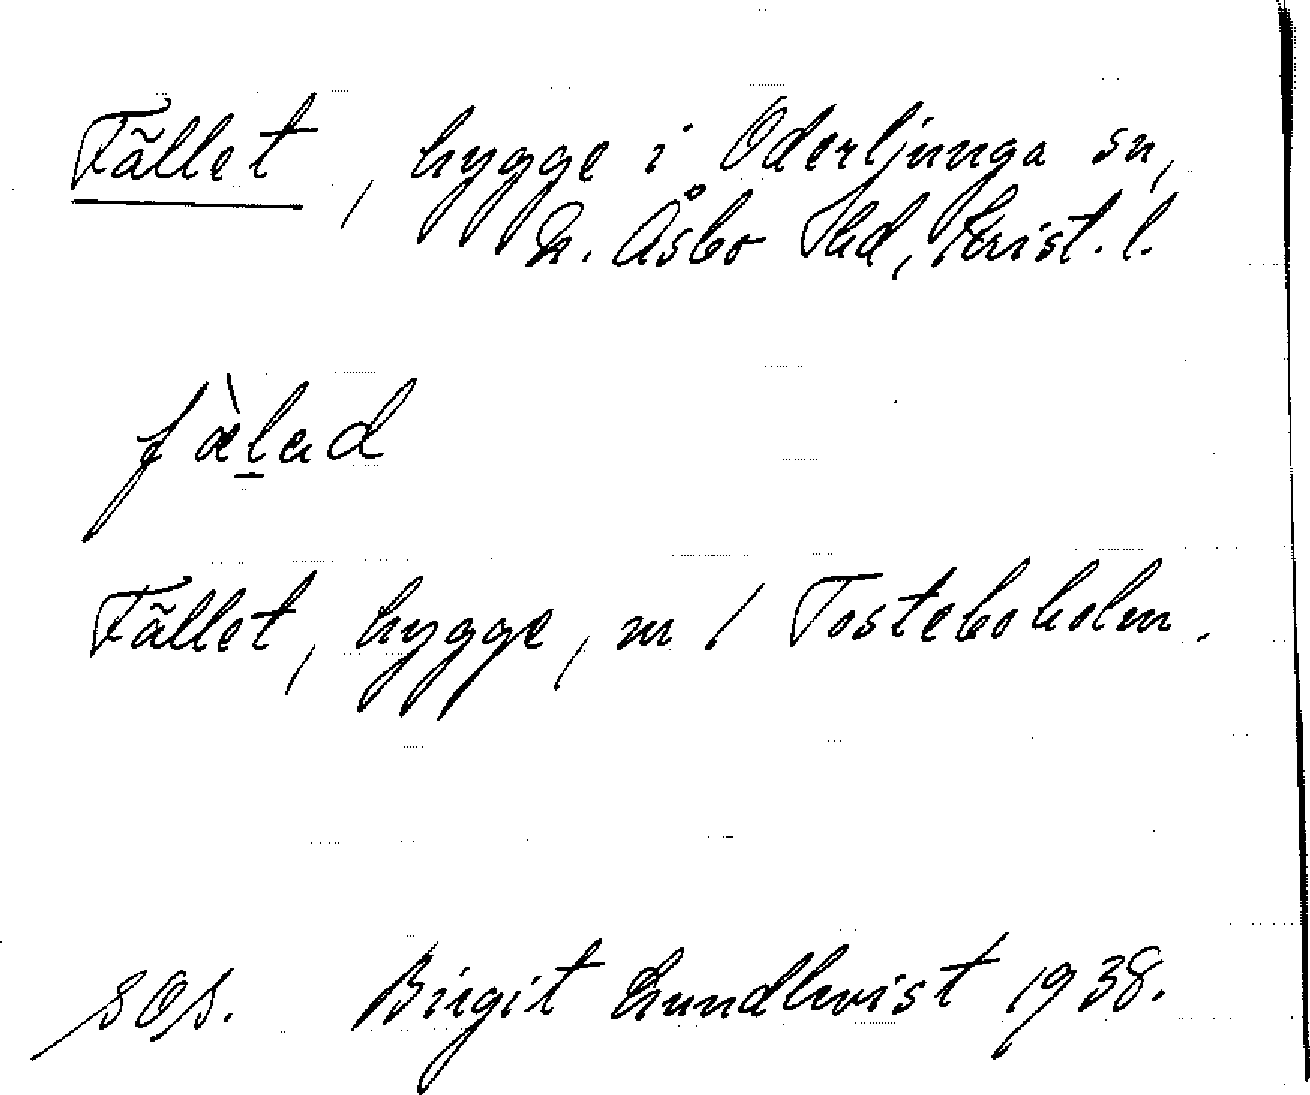 Fället, hygge i Oderljunga sn,
N. Åsbo hd, Krist. l.
fæ̀lad
Fället, hygge, nr 1 Tosteboholm.
SOS. Birgit Lundkvist 1938.